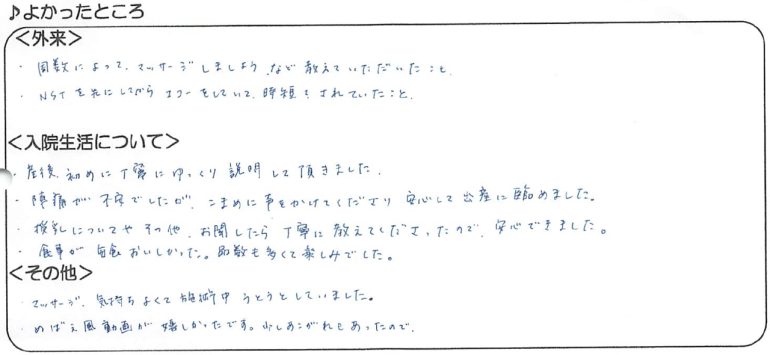 ♪よかったところ
＜外来＞
・周数によって、マッサージしましょう、など教えていただいたこと。
・NSTを先にしてからエコーをしていて、時短をされていたこと。
＜入院生活について＞
・産後、初めに丁寧にゆっくり説明して頂きました。
・陣痛が不安でしたが、こまめに声をかけてくださり安心して出産に臨めました。
・授乳についてやその他、お聞したら丁寧に教えてくださったので、安心できました。
・食事が毎食おいしかった。品数も多くて楽しみでした。
＜その他＞
・マッサージ、気持ちよくて施術中うとうとしていました。
・めばえ風動画が嬉しかったです。少しあこがれもあったので。